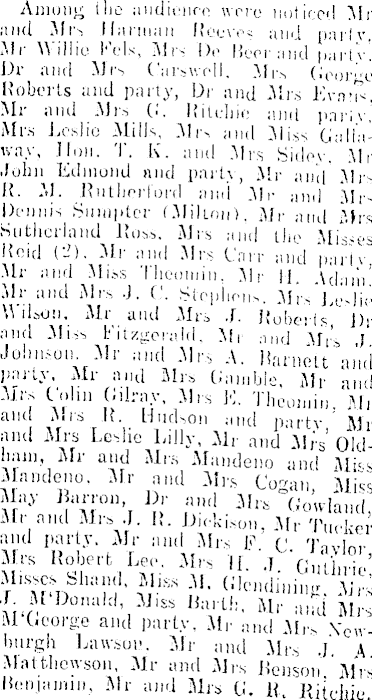 Among the audience were noticed Mr
and Mrs Harman Reeves and party,
Mr Willie Fels, Mrs De Beer and party,
Dr and Mrs Carswell, Mrs George
Roberts and party, Dr and Mrs Evans,
Mr and Mrs G. Ritchie and party,
Mrs Leslie Mills, Mrs and Miss Galla-
way, Hon. T. K. and Mrs Sidey, Mr
John Edmond and party, Mr and Mrs
R. M. Rutherford and Mr and Mrs
Dennis Sumpter (Milton), Mr and Mrs
Sutherland Ross, Mrs and the Misses
Reid (2), Mr and Mrs Carr and party,
Mr and Miss Theomin, Mr H. Adam,
Mr and Mrs J. C. Stephens, Mrs Leslie
Wilson, Mr and Mrs J. Roberts, Dr
and Miss Fitzgerald, Mr and Mrs J.
Johnson, Mr and Mrs A. Barnett and
party, Mr and Mrs Gamble, Mr and
Mrs Colin Gilray, Mrs E. Theomin, Mr
and Mrs R. Hudson and party, Mr
and Mrs Leslie Lilly, Mr and Mrs Old-
ham, Mr and Mrs Mandeno and Miss
Mandeno, Mr and Mrs Cogan, Miss
May Barron, Dr and Mrs Gowland,
Mr and Mrs J. R. Dickison, Mr Tucker
and party, Mr and Mrs F. C. Taylor,
Mrs Robert Lee, Mrs H. J. Guthrie,
Misses Shand, Miss M. Glendining, Mrs
J. M'Donald, Miss Barth, Mr and Mrs
M'George and party, Mr and Mrs New-
burgh Lawson, Mr and Mrs J. A.
Matthewson, Mr and Mrs Benson, Mrs
Benjamin, Mr and Mrs G. R. Ritchie,